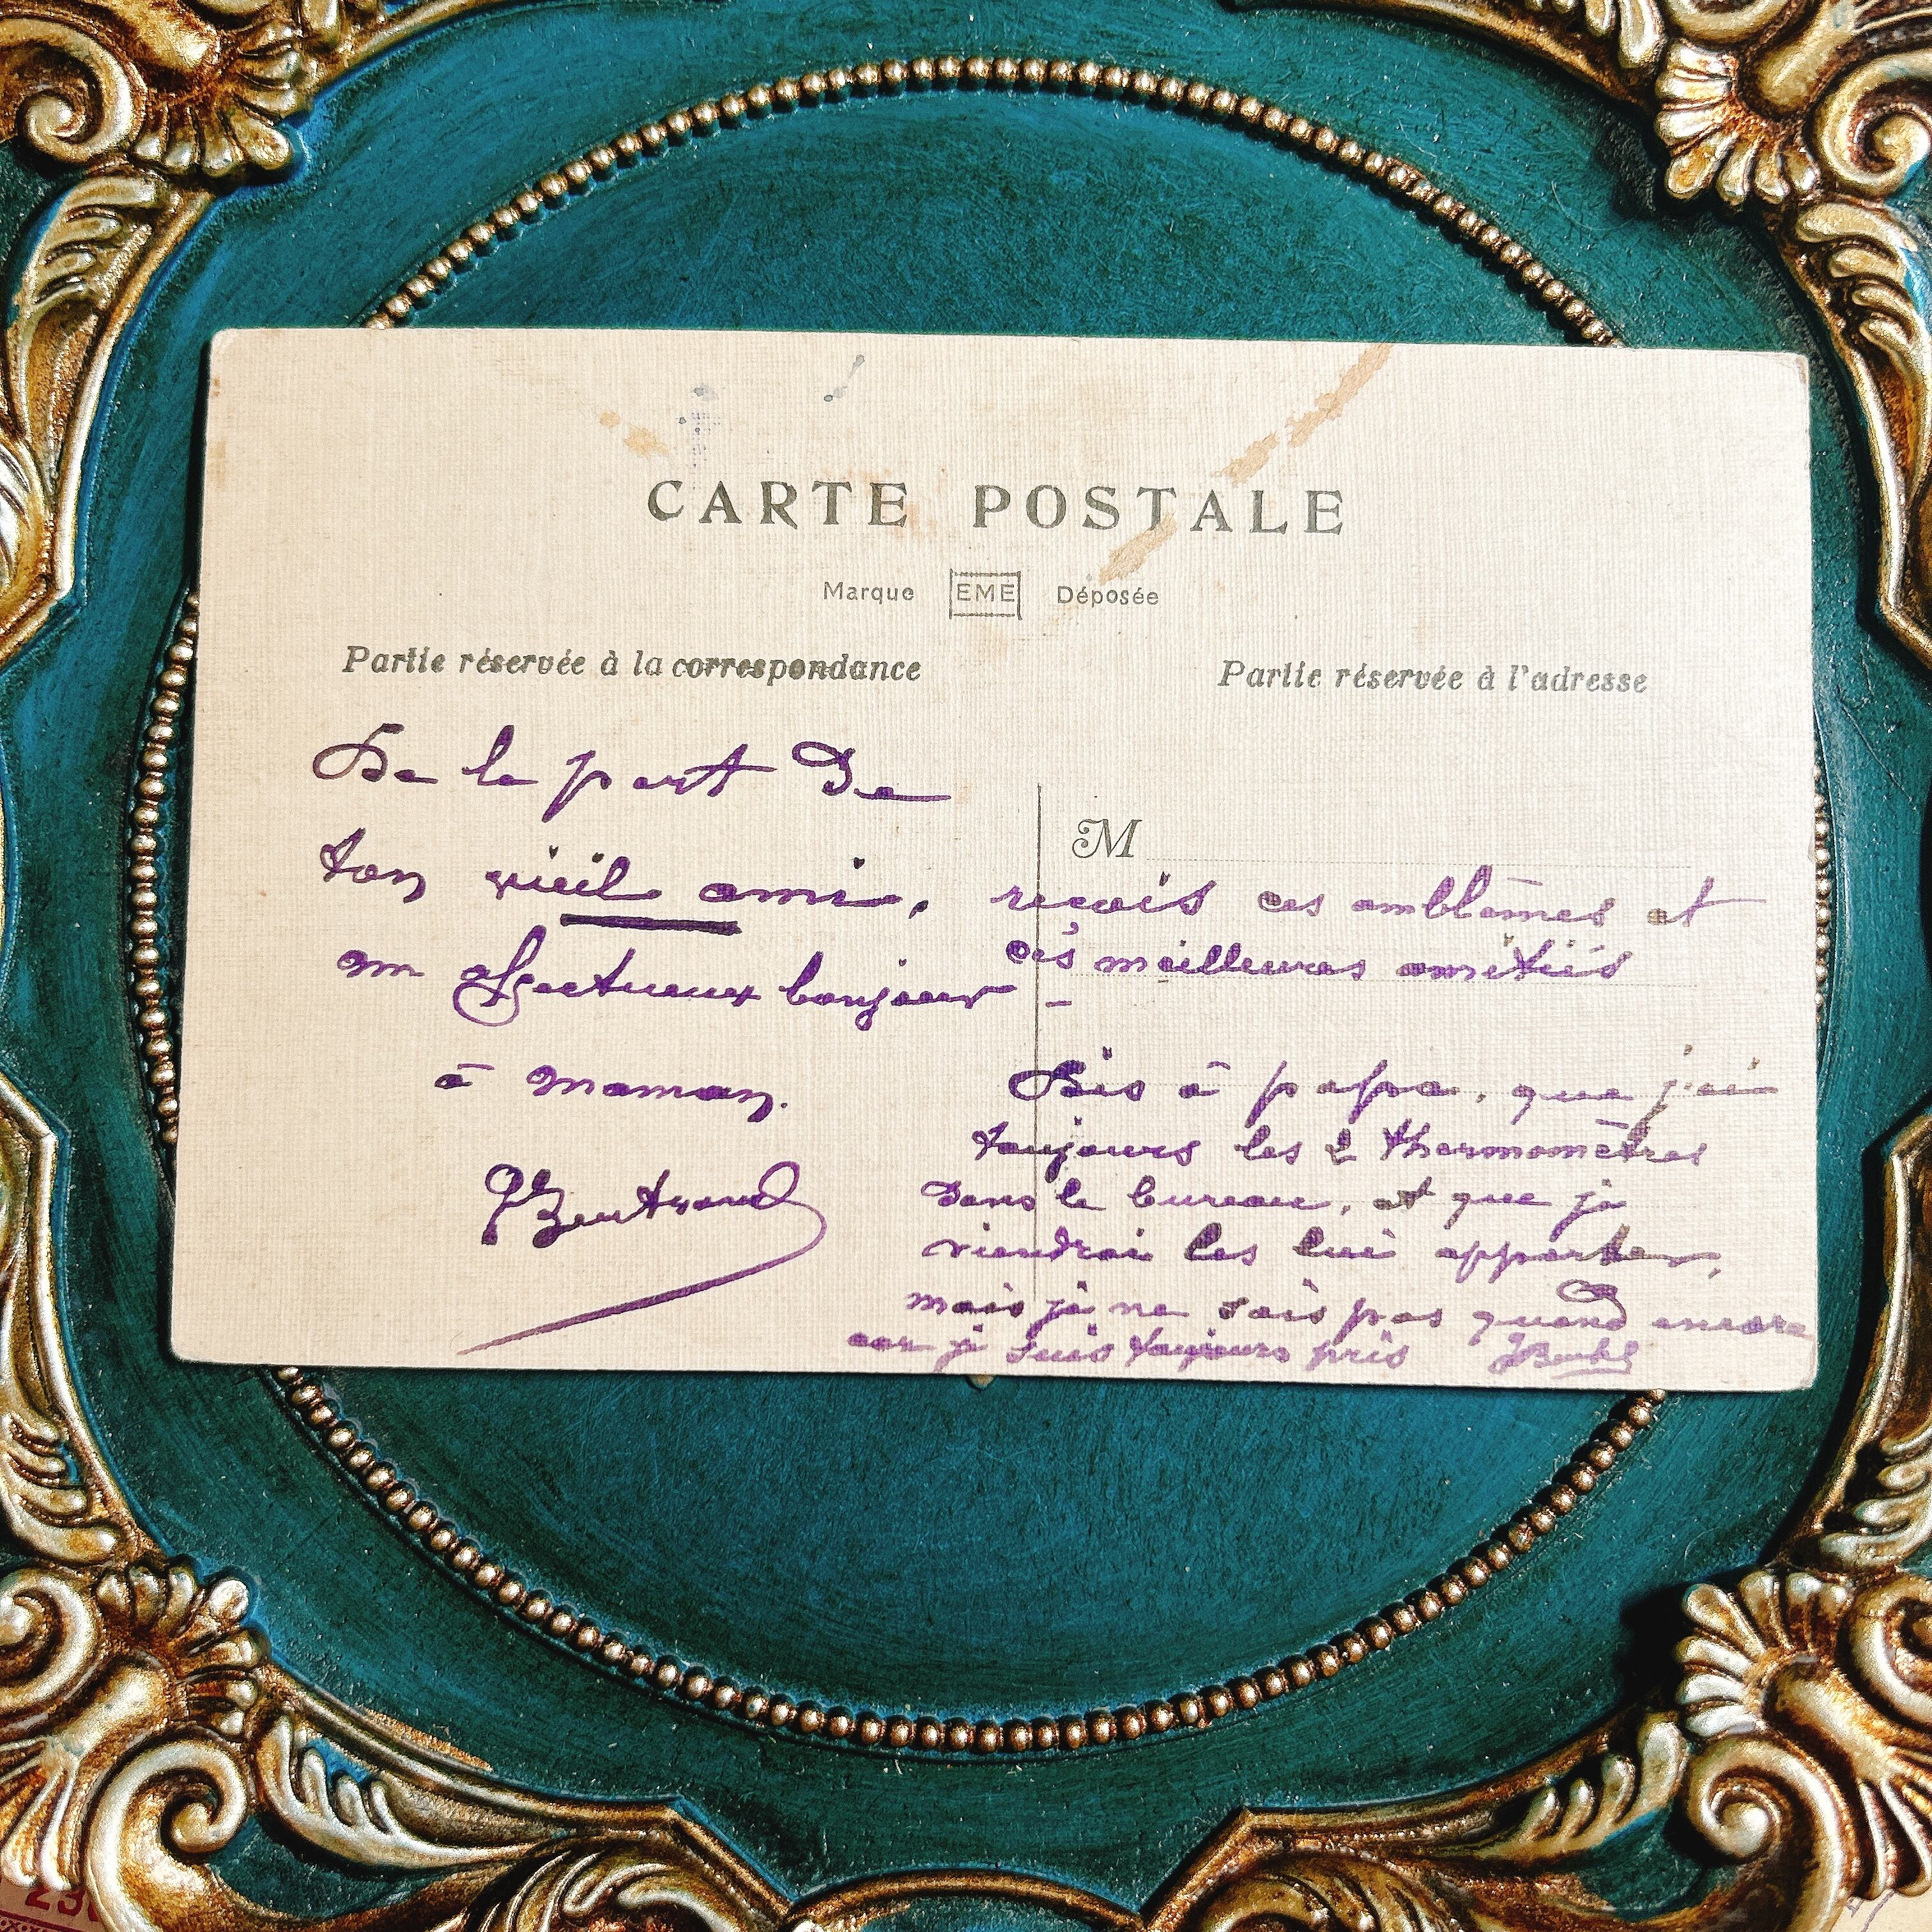 CARTE POSTALE
Marque EME Déposée
Partie réservée à la correspondance
Partie réservée à l'adresse
De la part De
ton vieil ami,
un affectueux bonjour -
à maman.
Bertrand
M
reçois ces emblèmes et
ces meilleures amitiés
Dis à papa, que j'ai
toujours les 2 thermomètres
Dans le bureau, et que je
viendrai les lui apporter,
mais je ne sais pas quand encore
car je suis toujours pris